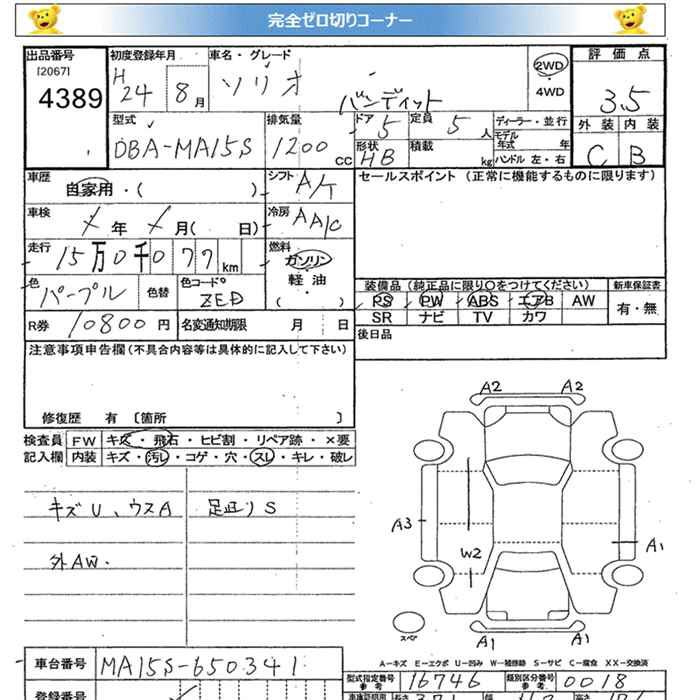 完全ゼロ切りコーナー
出品番号
[2067]
4389
初度登録年月
H 24 8 月
車名・グレード
ソリオ
バンディット
2WD
4WD
評価点
3.5
外装 内装
C B
型式
DBA-MA15S
排気量
1200 cc
ドア 5
定員 5 人
形状 HB
積載 kg
ディーラー・並行
モデル年式 年
ハンドル 左・右
車歴
自家用・( )
シフト A/T
車検
年 月( 日)
冷房 AA/C
走行
15万0千077 km
燃料
ガソリン
軽油
( )
色
パープル
色替
色コード
ZED
R券 10800円
名変通知期限 月 日
セールスポイント (正常に機能するものに限ります)
装備品 (純正品に限り○をつけてください)
PS PW ABS エアB AW
SR ナビ TV カワ
新車保証書
有・無
後日品
注意事項申告欄(不具合内容等は具体的に記入して下さい)
修復歴 有 〔箇所 〕
検査員
記入欄
FW キズ・飛石・ヒビ割・リペア跡・×要
内装 キズ・汚し・コゲ・穴・スレ・キレ・破レ
キズU、ウスA
足廻りS
外AW.
A2 A2
A3
W2
A1
スペア
A1 A1
A-キズ E-エクボ U-凹み W-補修跡 S-サビ C-腐食 XX-交換済
車台番号 MA15S-650341
型式指定番号 参考 16746
類別区分番号 参考 0018
登録番号